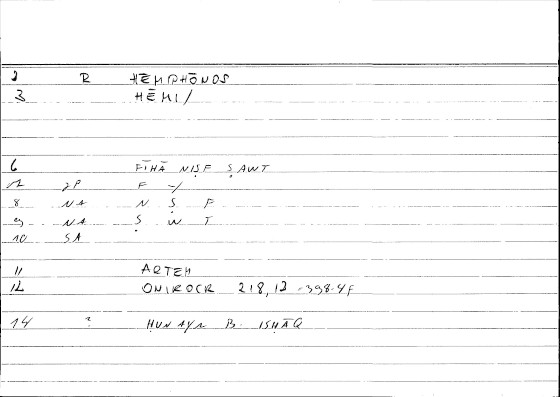 2 R HĒMIPHŌNOS
3 HĒMI/
6 FĪHĀ NIṢF ṢAWT
7 2P F -/
8 NA N Ṣ F
9 NA Ṣ W T
10 SA
11 ARTEM
12 ONIROCR 218,12 - 398.4F
14 ? ḤUNAYN B. ISḤĀQ